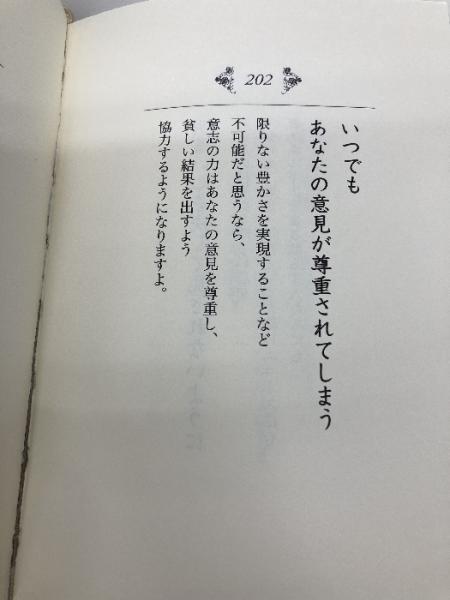 202
いつでも
あなたの意見が尊重されてしまう
限りない豊かさを実現することなど
不可能だと思うなら、
意志の力はあなたの意見を尊重し、
貧しい結果を出すよう
協力するようになりますよ。